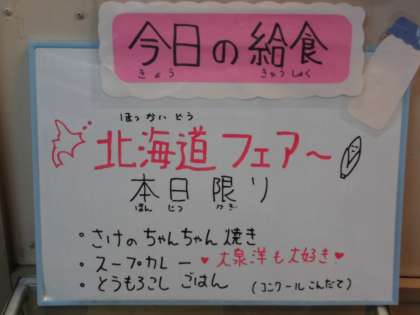 今日の給食
きょう きゅうしょく
ほっかいどう
北海道フェア〜
本日限り
ほん じつ かぎ
・さけのちゃんちゃん焼き
・スープカレー ♥大泉洋も大好き♥
・とうもろこしごはん (コンクールこんだて)